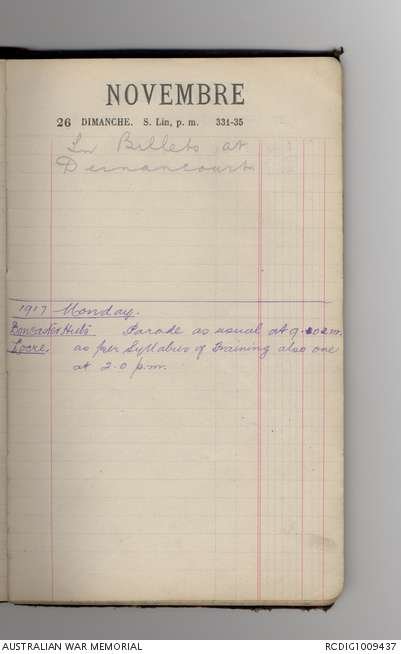 NOVEMBRE
26 DIMANCHE. S. Lin, p. m. 331-35
In Billets at
Dernancourt
1917 Monday.
Doncaster Huts Parade as usual at 9. a.m.
Locre. as per Syllabus of Training also one
at 2.0 p.m.
AUSTRALIAN WAR MEMORIAL
RCDIG1009437